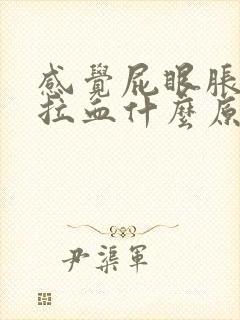 感覺屁眼脹
拉血什麼原
尹渠軍